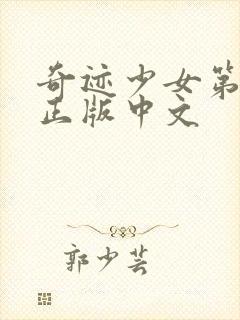 奇迹少女第
正版中文
郭少芸